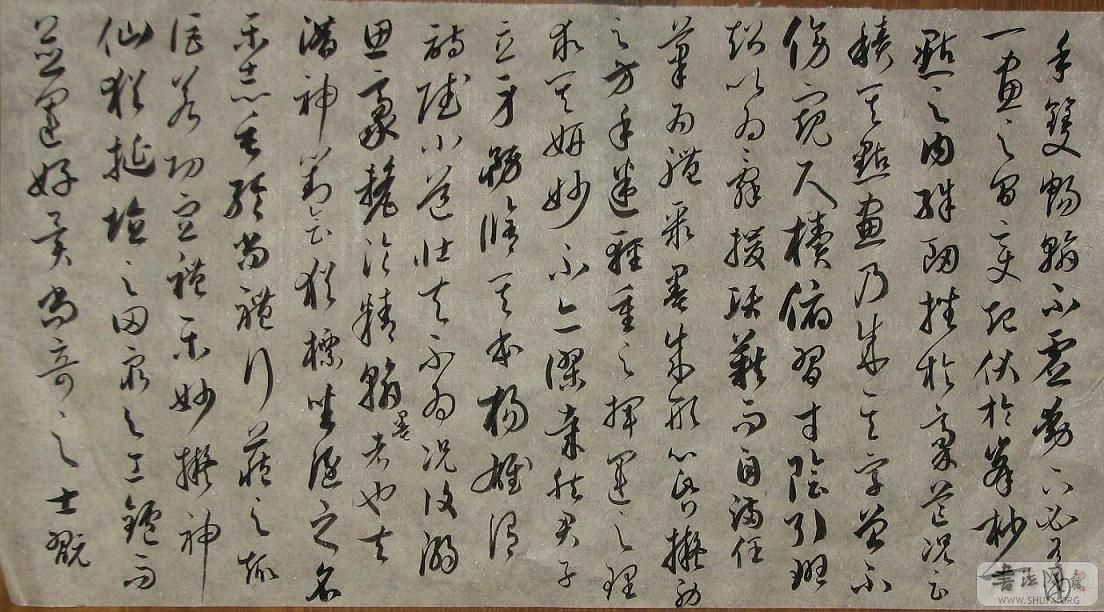 手雙暢翰不虛動下必有由
一畫之間變起伏於峯杪一
點之內殊衄挫於豪芒況云
積其點畫乃成其字曾不
傍窺尺櫝俯習寸陰引班
超以為辭援項籍而自滿任
筆為體聚墨成形心昏擬效
之方手迷輕重之揮運之理
求其妍妙不亦謬哉然君子
立身務脩其本楊雄謂
詩賦小道壯夫不為況復溺
思豪釐淪精翰墨者也夫
潛神對奕猶標坐隱之名
樂志垂綸尚體行藏之趣
詎若功宣禮樂妙擬神
仙猶挻埴之罔窮與工鑪而
並運好異尚奇之士翫
WWW.SHUFA.ORG